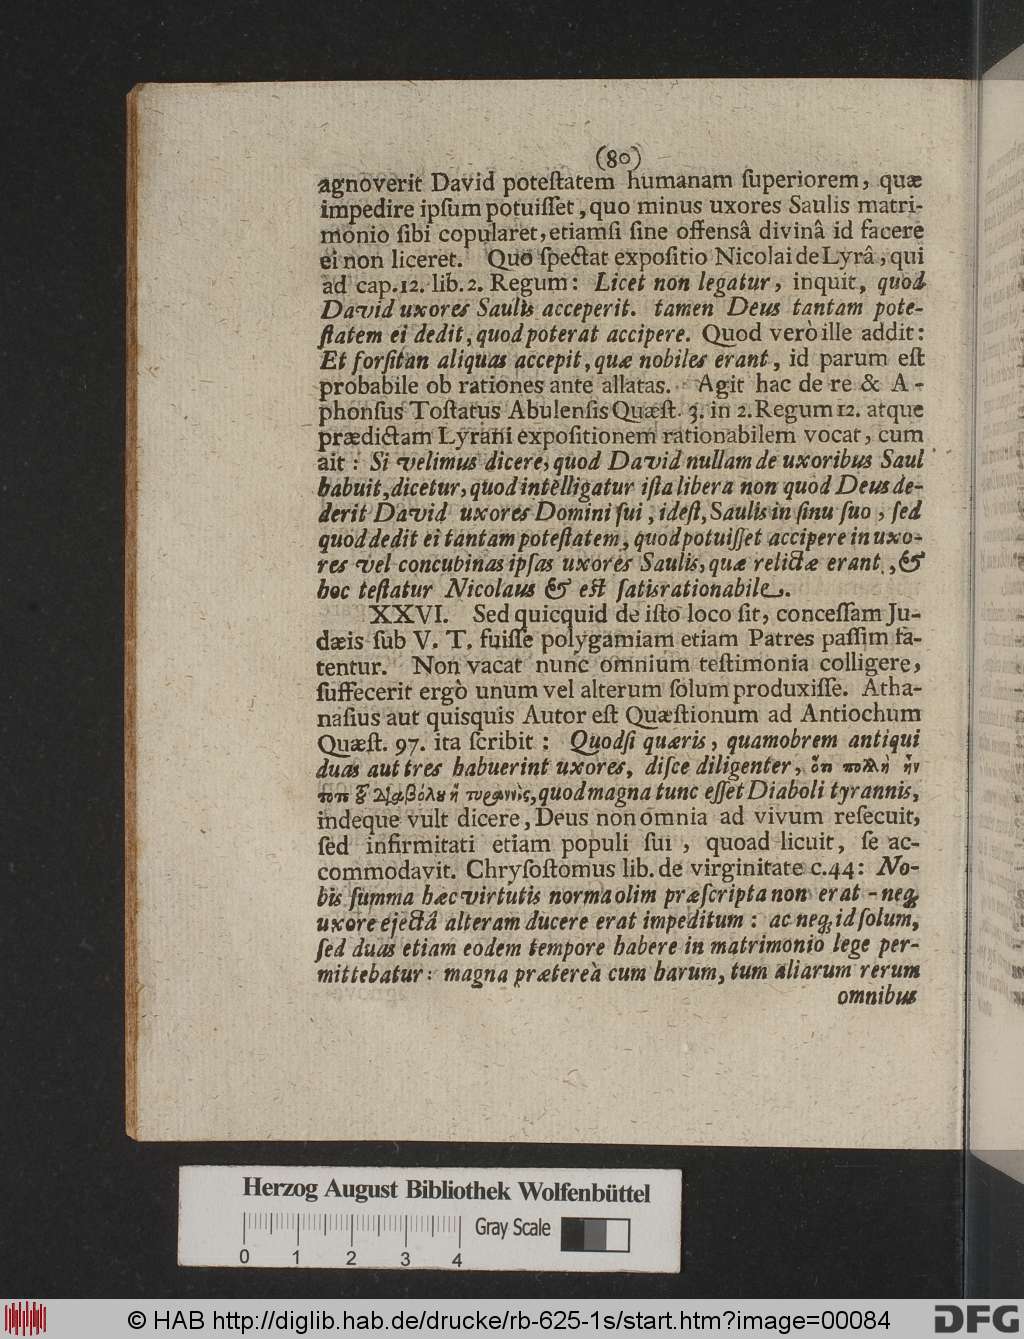 (80)
agnoverit David poteſtatem humanam ſuperiorem, quæ
impedire ipſum potuiſſet, quo minus uxores Saulis matri-
monio ſibi copularet, etiamſi ſine offensâ divinâ id facere
ei non liceret. Quo ſpectat expoſitio Nicolai de Lyrâ, qui
ad cap. 12. lib. 2. Regum: Licet non legatur, inquit, quod
David uxores Saulis acceperit. tamen Deus tantam pote-
ſtatem ei dedit, quod poterat accipere. Quod verò ille addit:
Et forſitan aliquas accepit, quæ nobiles erant, id parum eſt
probabile ob rationes ante allatas. Agit hac de re & A-
phonſus Toſtatus Abulenſis Quæſt. 3. in 2. Regum 12. atque
prædictam Lyrani expoſitionem rationabilem vocat, cum
ait: Si velimus dicere, quod David nullam de uxoribus Saul
habuit, dicetur, quod intèlligatur iſta libera non quod Deus de-
derit David uxores Domini ſui, ideſt, Saulis in ſinu ſuo, ſed
quod dedit ei tantam poteſtatem, quod potuiſſet accipere in uxo-
res vel concubinas ipſas uxores Saulis, quæ relictæ erant, &
hoc teſtatur Nicolaus & eſt ſatis rationabile.
XXVI. Sed quicquid de iſto loco ſit, conceſſam Ju-
dæis ſub V. T. fuiſſe polygamiam etiam Patres paſſim fa-
tentur. Non vacat nunc omnium teſtimonia colligere,
ſuffecerit ergò unum vel alterum ſolum produxiſſe. Atha-
naſius aut quisquis Autor eſt Quæſtionum ad Antiochum
Quæſt. 97. ita ſcribit: Quodſi quæris, quamobrem antiqui
duas aut tres habuerint uxores, diſce diligenter, ὅτι πολλὴ ἦν
τότε τȣ͂ Διαβόλȣ ἡ τυραννὶς, quod magna tunc eſſet Diaboli tyrannis,
indeque vult dicere, Deus non omnia ad vivum reſecuit,
ſed infirmitati etiam populi ſui, quoad licuit, ſe ac-
commodavit. Chryſoſtomus lib. de virginitate c. 44: No-
bis ſumma hæc virtutis norma olim præſcripta non erat - neq;
uxore ejectâ alteram ducere erat impeditum: ac neq; id ſolum,
ſed duas etiam eodem tempore habere in matrimonio lege per-
mittebatur: magna prætereà cum harum, tum aliarum rerum
omnibus
Herzog August Bibliothek Wolfenbüttel
Gray Scale
0 1 2 3 4
© HAB http://diglib.hab.de/drucke/rb-625-1s/start.htm?image=00084
DFG